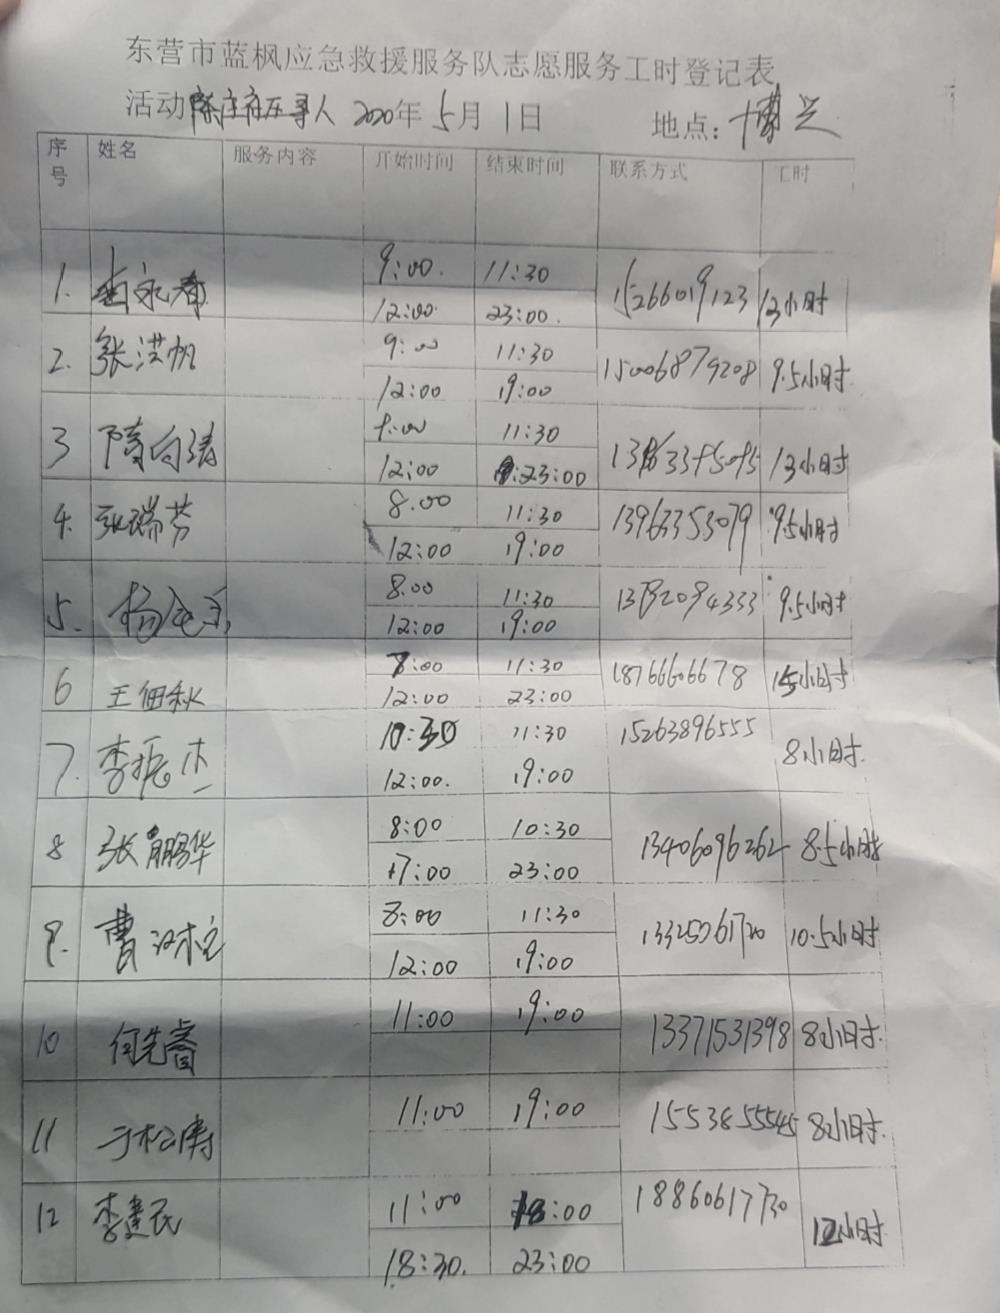 东营市蓝枫应急救援服务队志愿服务工时登记表
活动 寻人 2020年 5月 1日 地点: 博兴
序号 姓名 服务内容 开始时间 结束时间 联系方式 工时
9:00. 11:30
1. 李永春 15266019123 13小时
12:00 23:00.
9:00 11:30
2. 张洪帆 15006879208 9.5小时
12:00 19:00
11:30
3 隋向涛 13小时
12:00 23:00
8.00 11:30
4. 张瑞芳 13963353079 9.5小时
12:00 19:00
8.00 11:30
5. 杨 9.5小时
12:00 19:00
8:00 11:30
6 王佃秋 18766606678 15小时
12:00 23:00
10:30 11:30
7. 李振杰 15263896555 8小时.
12:00. 19:00
8:00 10:30
8 张鹏华 13406096262 8.5小时
17:00 23:00
8:00 11:30
9. 曹汉柱 13325061720 10.5小时
12:00 19:00
11:00 19:00
10 何先睿 13371531398 8小时.
11:00 19:00
11 于松涛 15538655545 8小时.
11:00 18:00
12 李建民 18860617730 12小时
18:30. 23:00